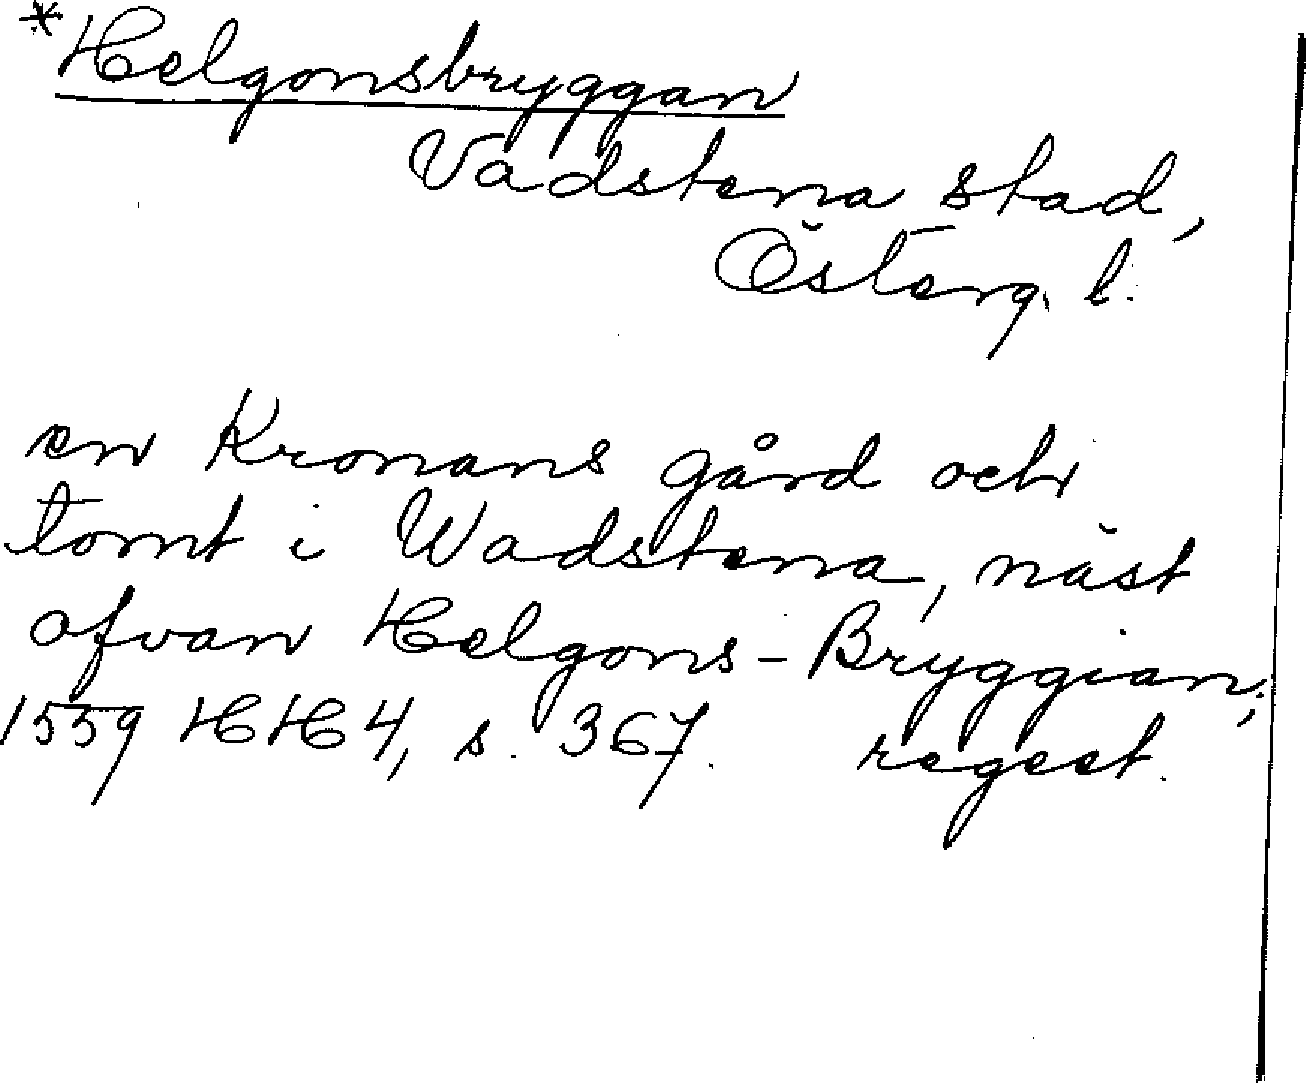 *Helgonsbryggan
Vadstena stad,
Österg. l.
en Kronans gård och
tomt i Wadstena, näst
ofvan Helgons-Bryggian;
1559 HH 4, s. 367. regest.